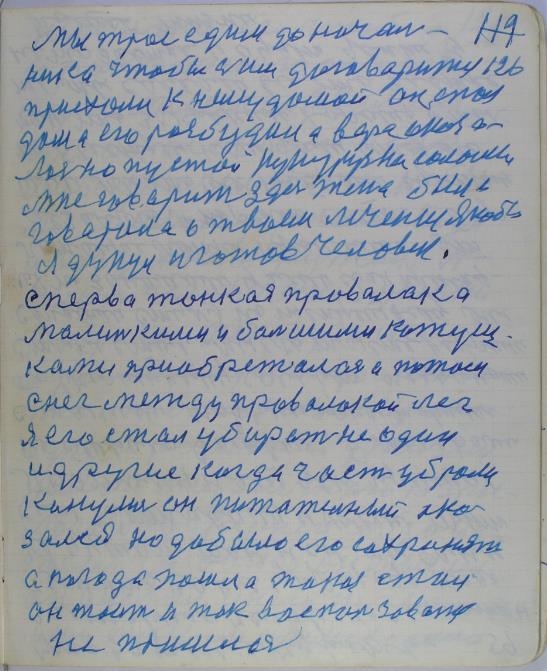 мы трое едим до начал- 119
ника чтобы с ним договорится 126
приехоли к нему домой он спал
дома его розбудил а вдра
лоя но пустой кукурузна солома
мне говарит здес жена была
говарила о твоем лечении якобы
я дунул и готов человек.
сперва тонкая провалака
малинкими и болшими котуш-
ками приобреталоя а потом
снег между провалокой лег
я его стал убират не один
и другие когда част убрали
кинули он питателный ока-
зался но добыло его сохронят
а погода пошла такая стал
он таят и так воспользоват
не пришлоя